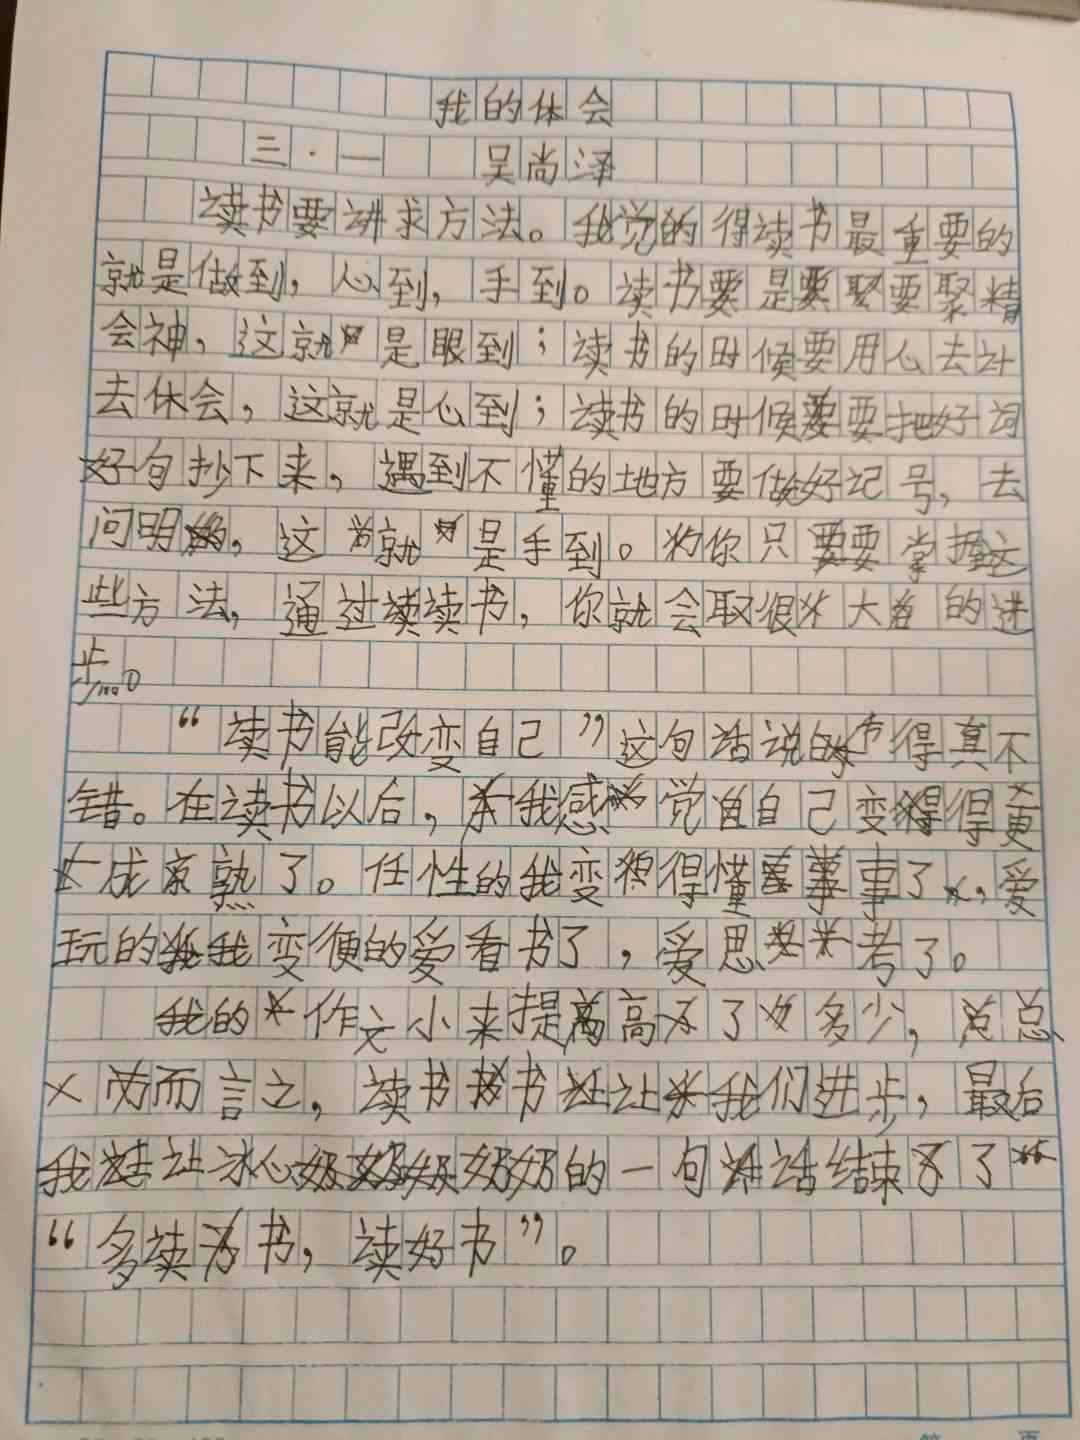 我的体会
三·一 吴尚泽
读书要讲求方法。我觉得读书最重要的
就是做到，心到，手到。读书要是要聚精
会神，这就是眼到；读书的时候要用心去
去体会，这就是心到；读书的时候要把好词
好句抄下来，遇到不懂的地方要做好记号，去
问明，这就是手到。你只要掌握这
些方法，通过读书，你就会取很大的进
步。
“读书能改变自己”这句话说得真不
错。在读书以后，我感觉自己变得更
成熟了。任性的我变得懂事了，爱
玩的我变便的爱看书了，爱思考了。
我的作文小来提高了多少，总
而言之，读书让我们进步，最后
我让冰心奶奶的一句话结束了
“多读书，读好书”。